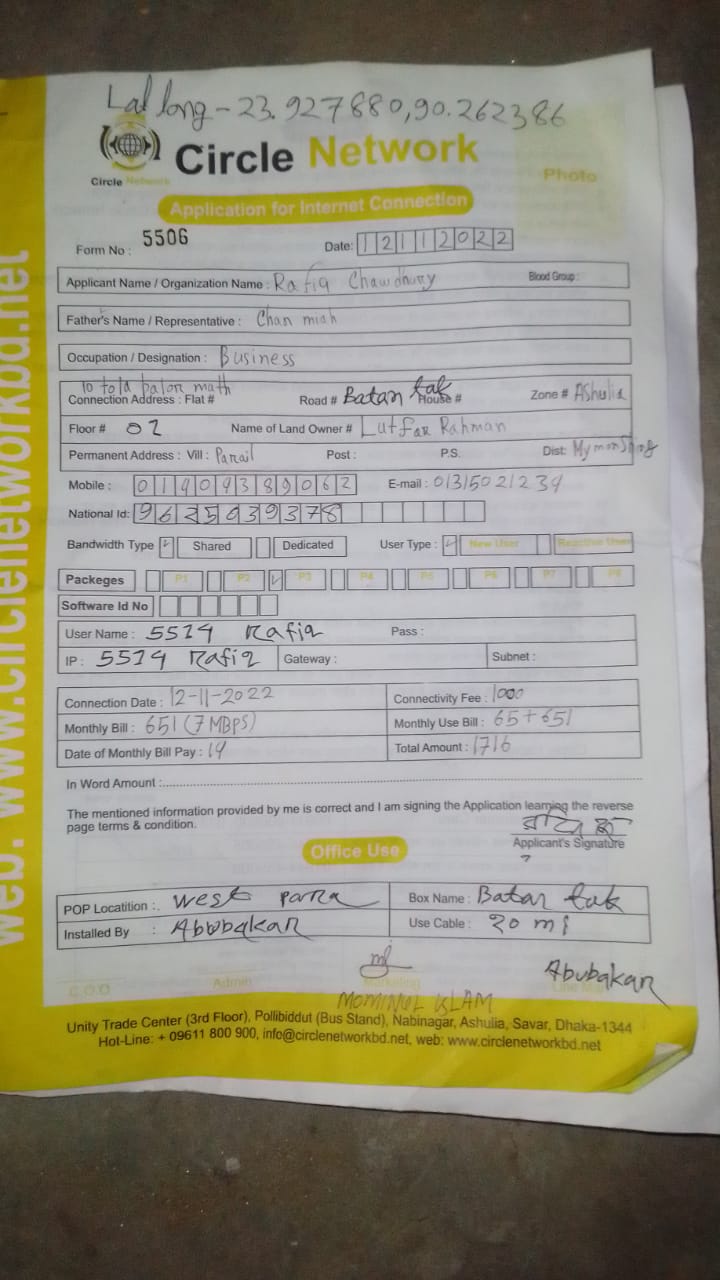 Lat long - 23.927880,90.262386
Circle Network
Circle Network
Photo
Application for Internet Connection
Form No : 5506 Date: 12112022
Applicant Name / Organization Name : Rafiq Chawdhury Blood Group :
Father's Name / Representative : Chan miah
Occupation / Designation : Business
10 tola balor math
Connection Address : Flat # Road # Batan tak House # Zone # Ashulia
Floor # 02 Name of Land Owner # Lutfar Rahman
Permanent Address : Vill : Parail Post : P.S. Dist: Mymonshing
Mobile : 01909389062 E-mail : 01315021234
National Id: 9625939378
Bandwidth Type Shared Dedicated User Type : New User Reactive User
Packeges P1 P2 P3 P4 P5 P6 P7 P8
Software Id No
User Name : 5514 Rafiq Pass :
IP : 5514 Rafiq Gateway : Subnet :
Connection Date : 12-11-2022 Connectivity Fee : 1000
Monthly Bill : 651 (7 MBPS) Monthly Use Bill : 65+651
Date of Monthly Bill Pay : 14 Total Amount : 1716
In Word Amount :
The mentioned information provided by me is correct and I am signing the Application learning the reverse
page terms & condition.
Applicant's Signature
Office Use
POP Locatition : west para Box Name : Batan tak
Installed By : Abubakar Use Cable : 20 mi
Abubakar
C.O.O Admin Marketing Line Man
MOMINUL ISLAM
Unity Trade Center (3rd Floor), Pollibiddut (Bus Stand), Nabinagar, Ashulia, Savar, Dhaka-1344
Hot-Line: + 09611 800 900, info@circlenetworkbd.net, web: www.circlenetworkbd.net
web: www.circlenetworkbd.net